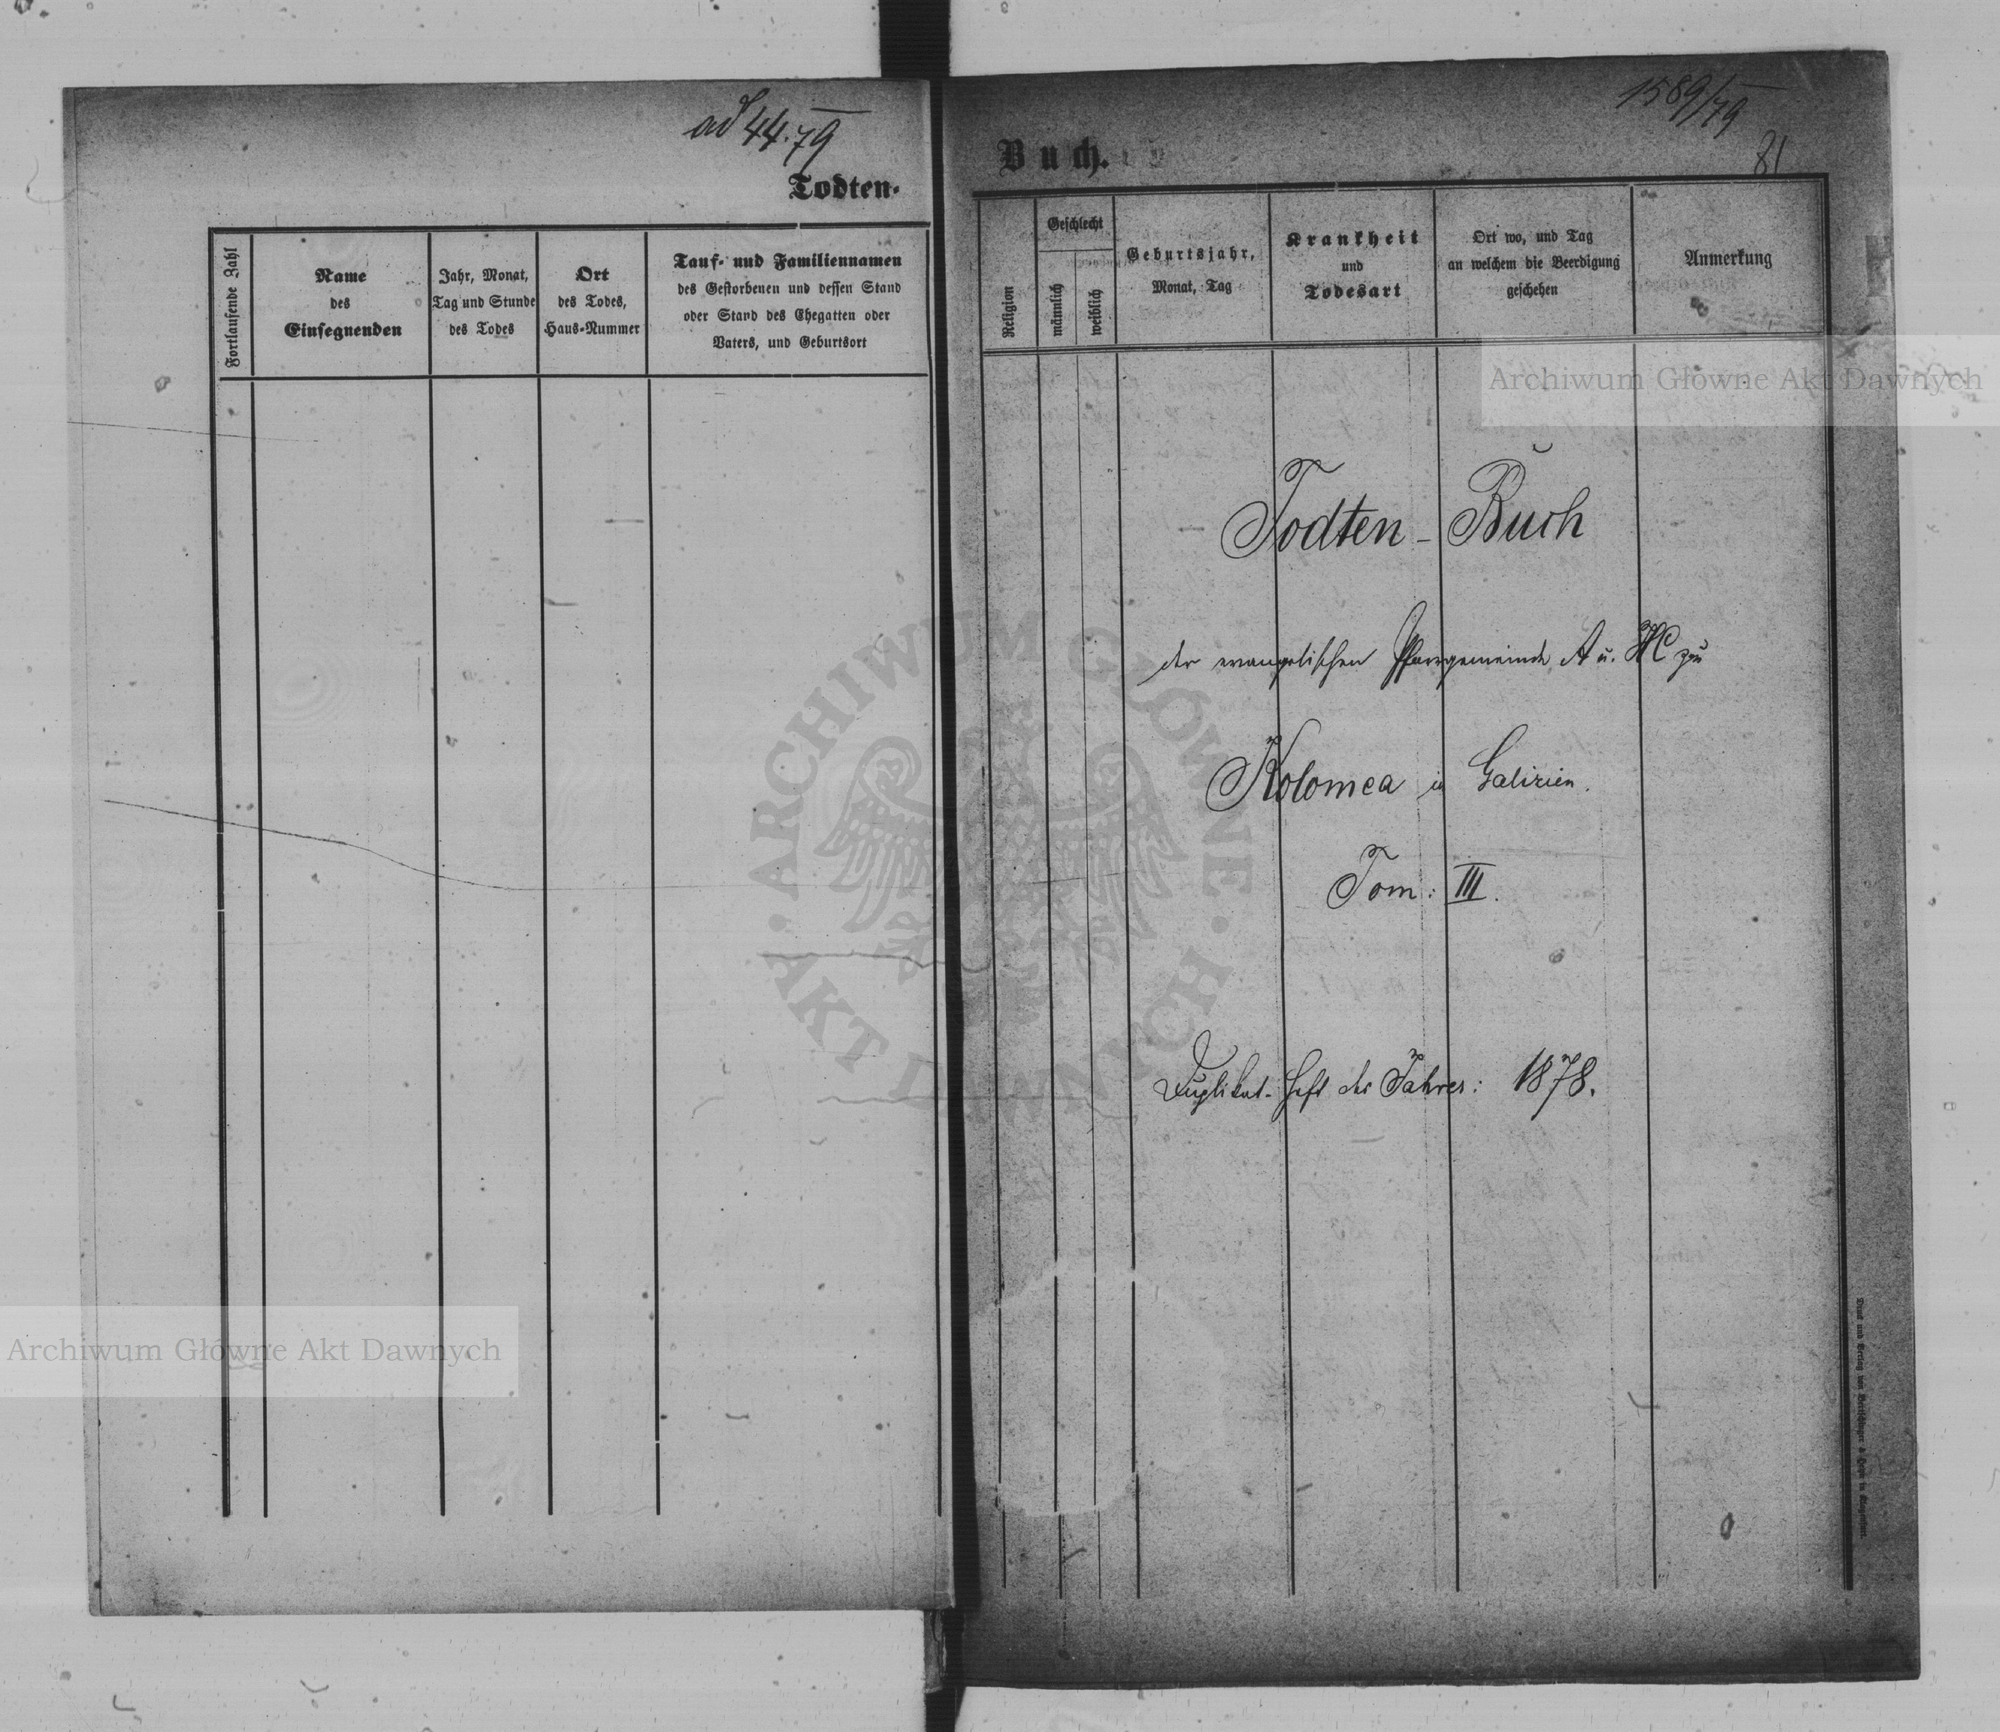 ad 44.79
Todten-
Fortlaufende Zahl
Name
des
Einsegnenden
Jahr, Monat,
Tag und Stunde
des Todes
Ort
des Todes,
Haus-Nummer
Tauf- und Familiennamen
des Gestorbenen und dessen Stand
oder Stand des Ehegatten oder
Vaters, und Geburtsort
1589/79
81
Buch.
Religion
Geschlecht
männlich
weiblich
Geburtsjahr,
Monat, Tag
Krankheit
und
Todesart
Ort wo, und Tag
an welchem die Beerdigung
geschehen
Anmerkung
Todten-Buch
der evangelischen Pfarrgemeinde A u. HC zu
Kolomea in Galizien.
Tom: III.
Duplikat-Heft des Jahres: 1878.
Archiwum Główne Akt Dawnych
Archiwum Główne Akt Dawnych
ARCHIWUM GŁÓWNE AKT DAWNYCH